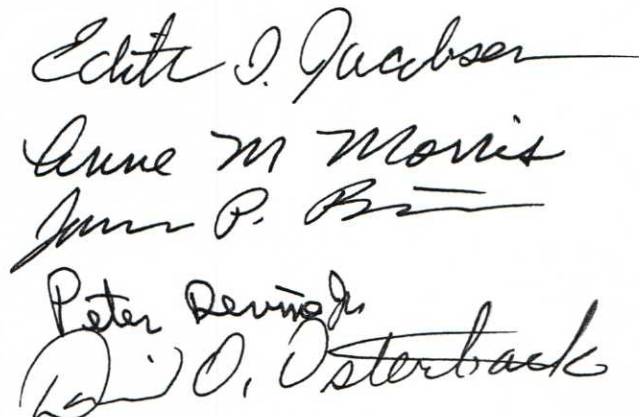 Edith I. Jacobsen
Anne M Morris
James P.
Peter Devine Jr.
David O. Osterback